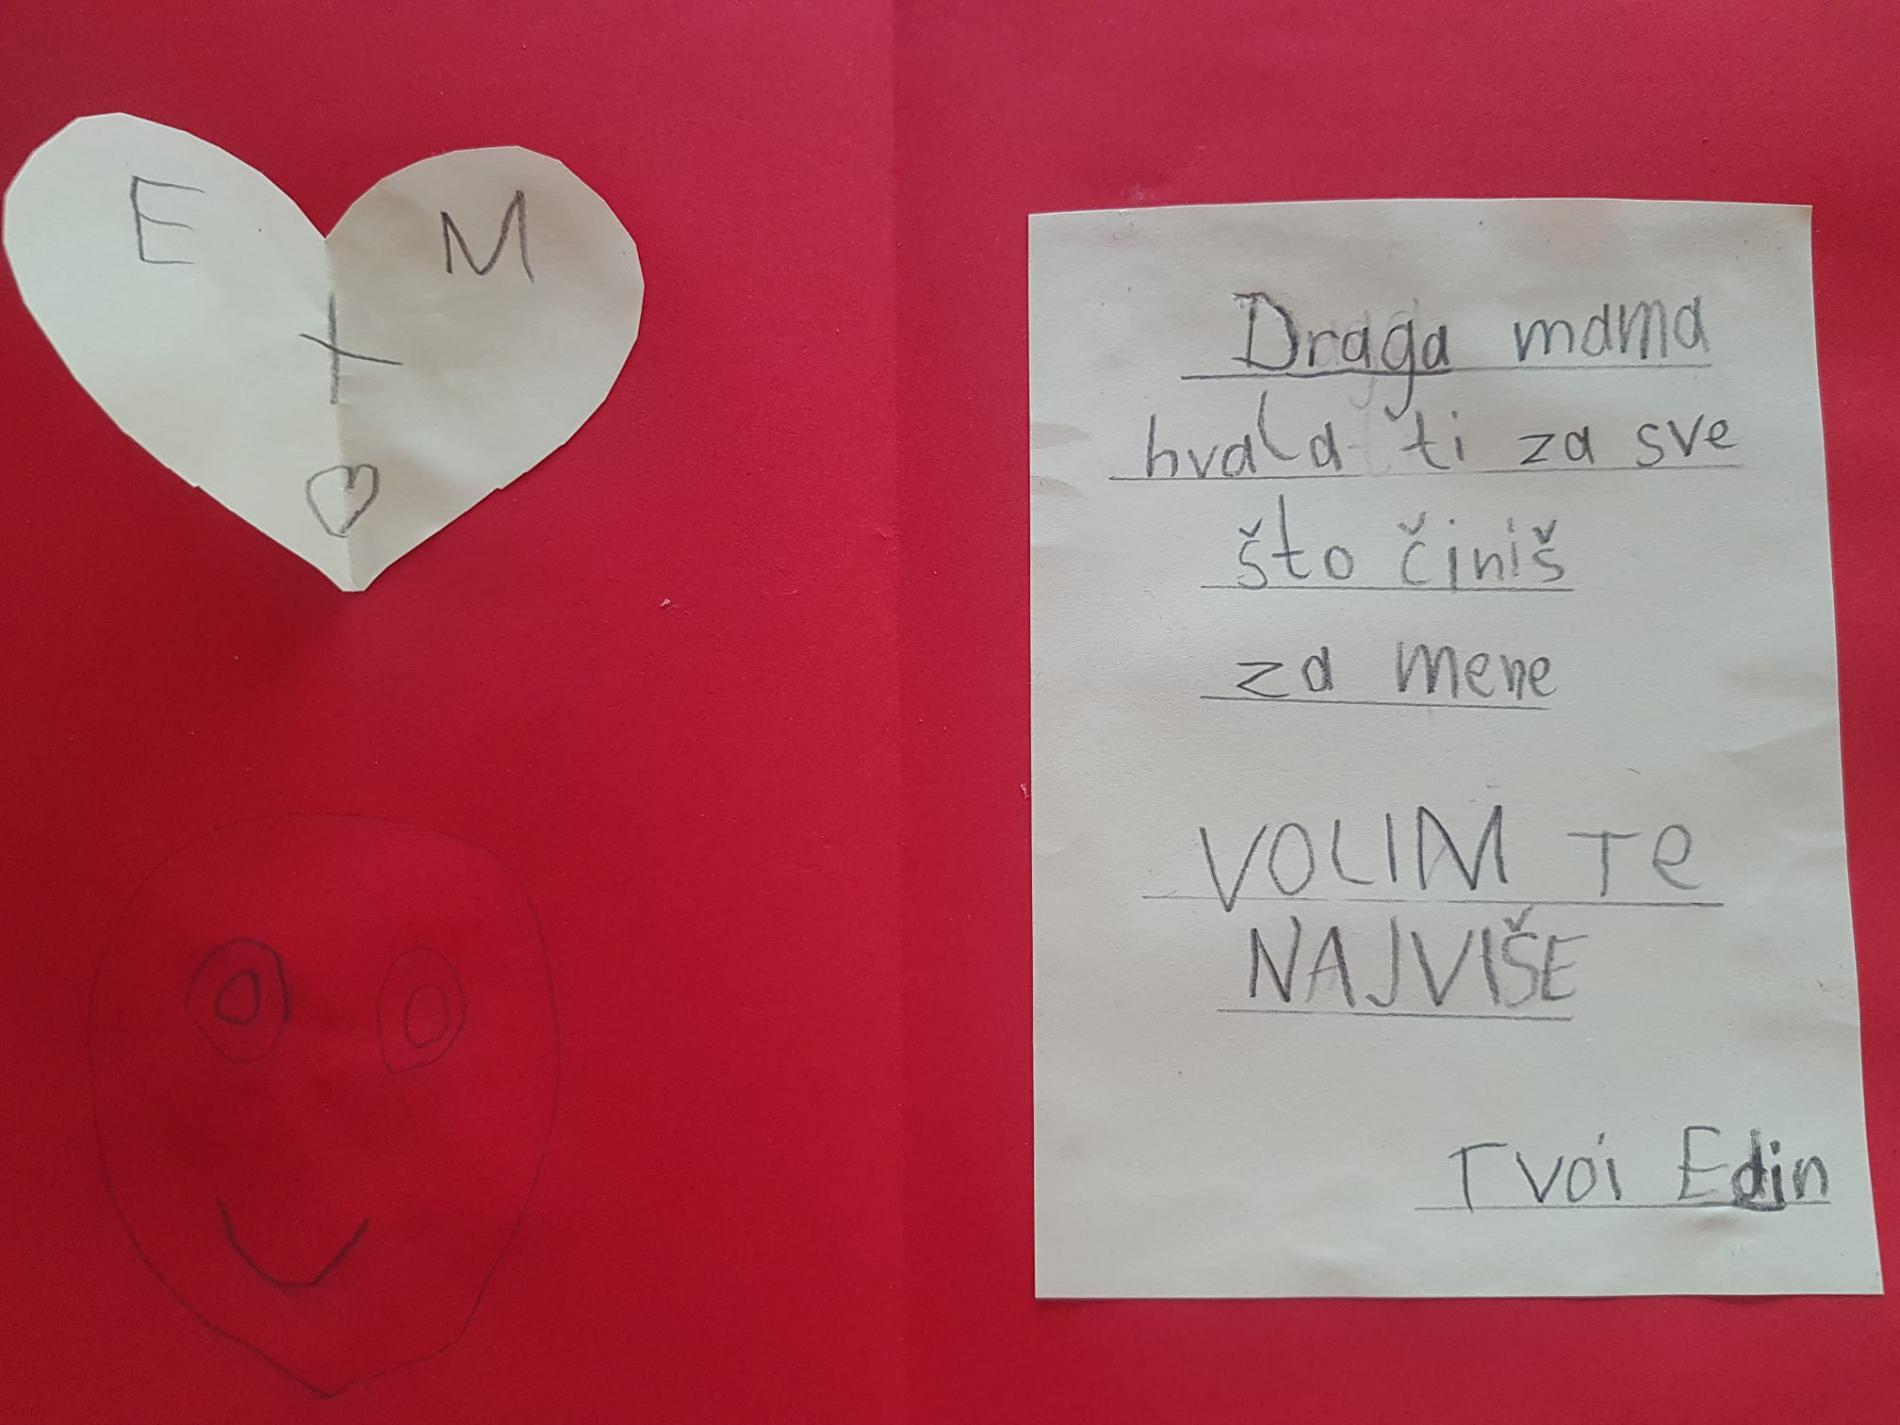 E M
+
Draga mama
hvala ti za sve
što činiš
za mene
VOLIM Te
NAJVIŠE
Tvoi Edin